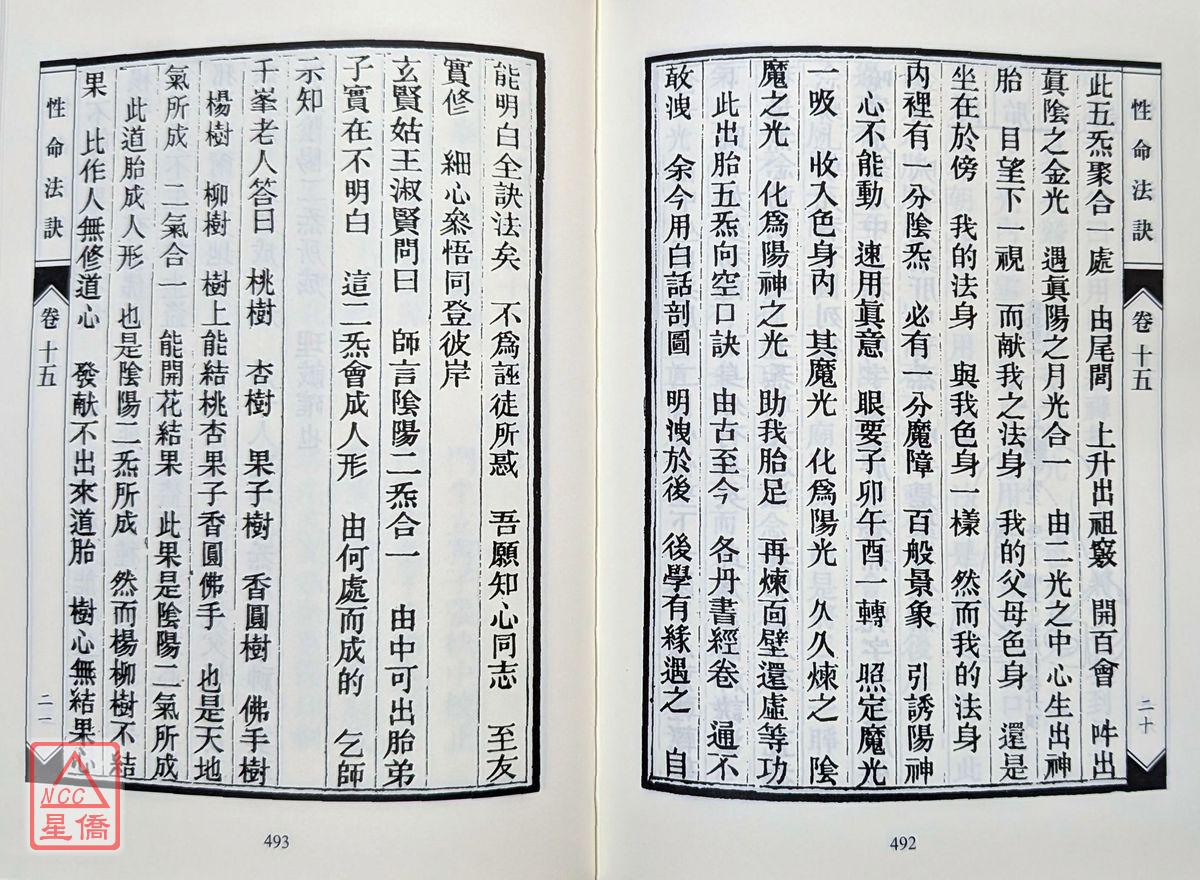 性命法訣
卷十五
二十
此五炁聚合一處 由尾閭 上升出祖竅 開百會 吽出
眞陰之金光 遇眞陽之月光合一 由二光之中心生出神
胎 目望下一視 而献我之法身 我的父母色身 還是
坐在於傍 我的法身 與我色身一樣 然而我的法身
內裡有一分陰炁 必有一分魔障 百般景象 引誘陽神
心不能動 速用眞意 眼要子卯午酉一轉 照定魔光
一吸 收入色身內 其魔光 化爲陽光 久久煉之 陰
魔之光 化爲陽神之光 助我胎足 再煉面壁還虛等功
此出胎五炁向空口訣 由古至今 各丹書經卷 通不
敢洩 余今用白話剖圖 明洩於後 後學有緣遇之 自
492
能明白全訣法矣 不爲誣徒所惑 吾願知心同志 至友
實修 細心叅悟同登彼岸
玄賢姑王淑賢問曰 師言陰陽二炁合一 由中可出胎弟
子實在不明白 這二炁會成人形 由何處而成的 乞師
示知
千峯老人答曰 桃樹 杏樹 果子樹 香圓樹 佛手樹
楊樹 柳樹 樹上能結桃杏果子香圓佛手 也是天地
氣所成 二氣合一 能開花結果 此果是陰陽二氣所成
此道胎成人形 也是陰陽二炁所成 然而楊柳樹不結
果 比作人無修道心 發献不出來道胎 樹心無結果心
性命法訣
卷十五
二一
493
NCC
星僑